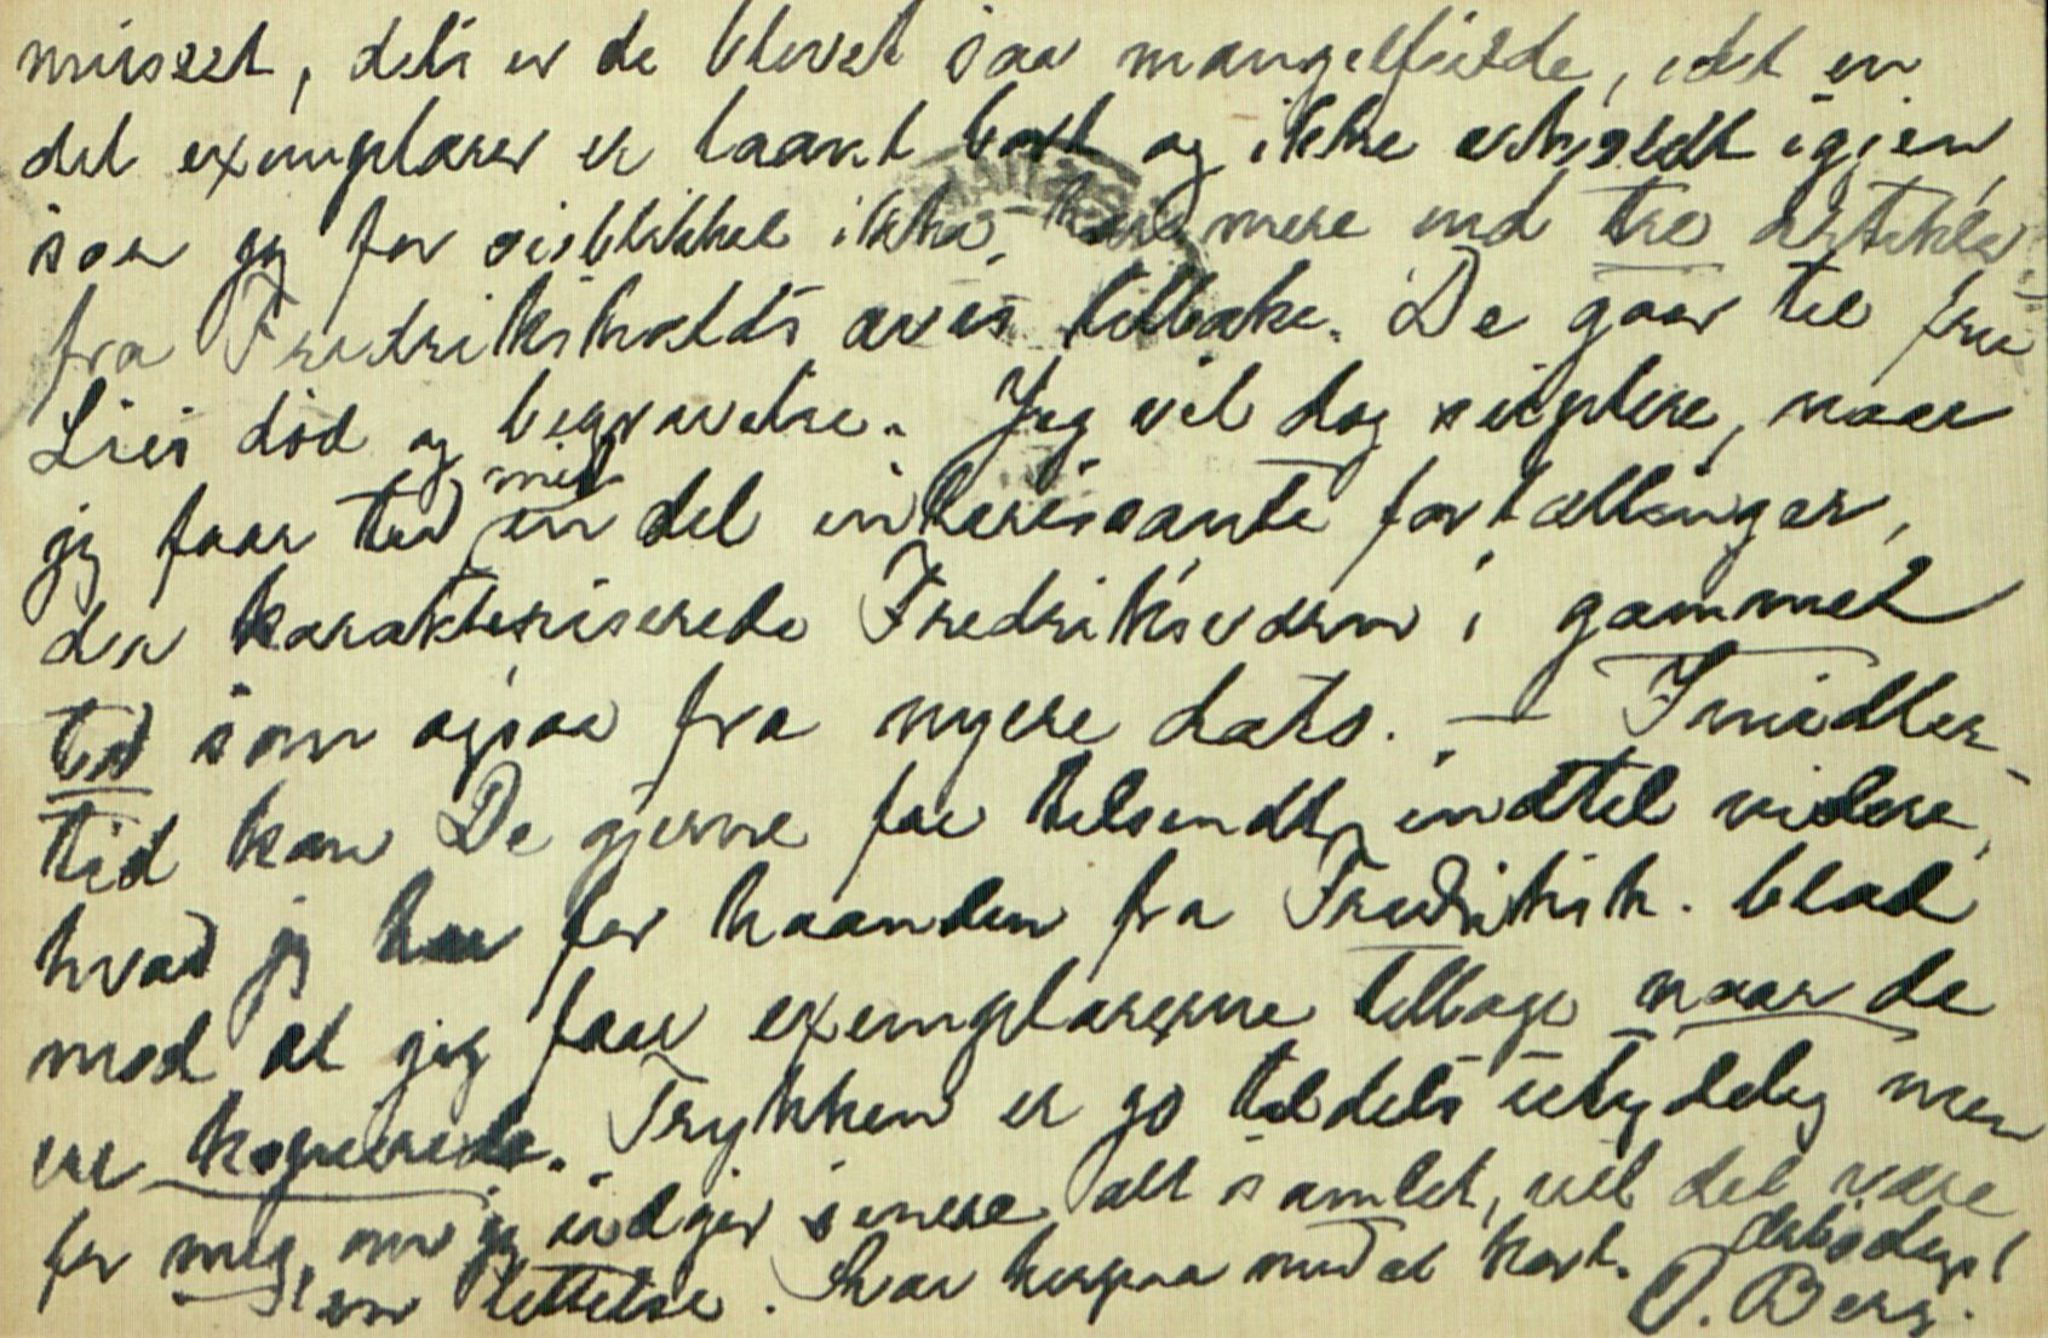 misset, dels er de blevet saa mangelfulde, idet en
del exemplarer er laant bort og ikke erholdt igjen,
saa jeg for øieblikket ikke har mere end tre artikler
fra Fredrikshalds avis tilbake. De gaar til frue
Lies død og begravelse. Jeg vil dog supplere, naar
jeg faar tid med en del interessante fortællinger,
der karakteriserede Fredriksværn i gammel
tid som ogsaa fra nyere dato. – Imidler-
tid kan De gjerne faa tilsendt, indtil videre,
hvad jeg har for haanden fra Fredriksh. blad
mod at jeg faar exemplarerne tilbage naar de
ere kopierede. Trykken er jo tildels utydelig men
for mig, om jeg udgir senere alt samlet, vil det være
en lettelse. Svar herpaa med et kort. Deres
O. Berg.